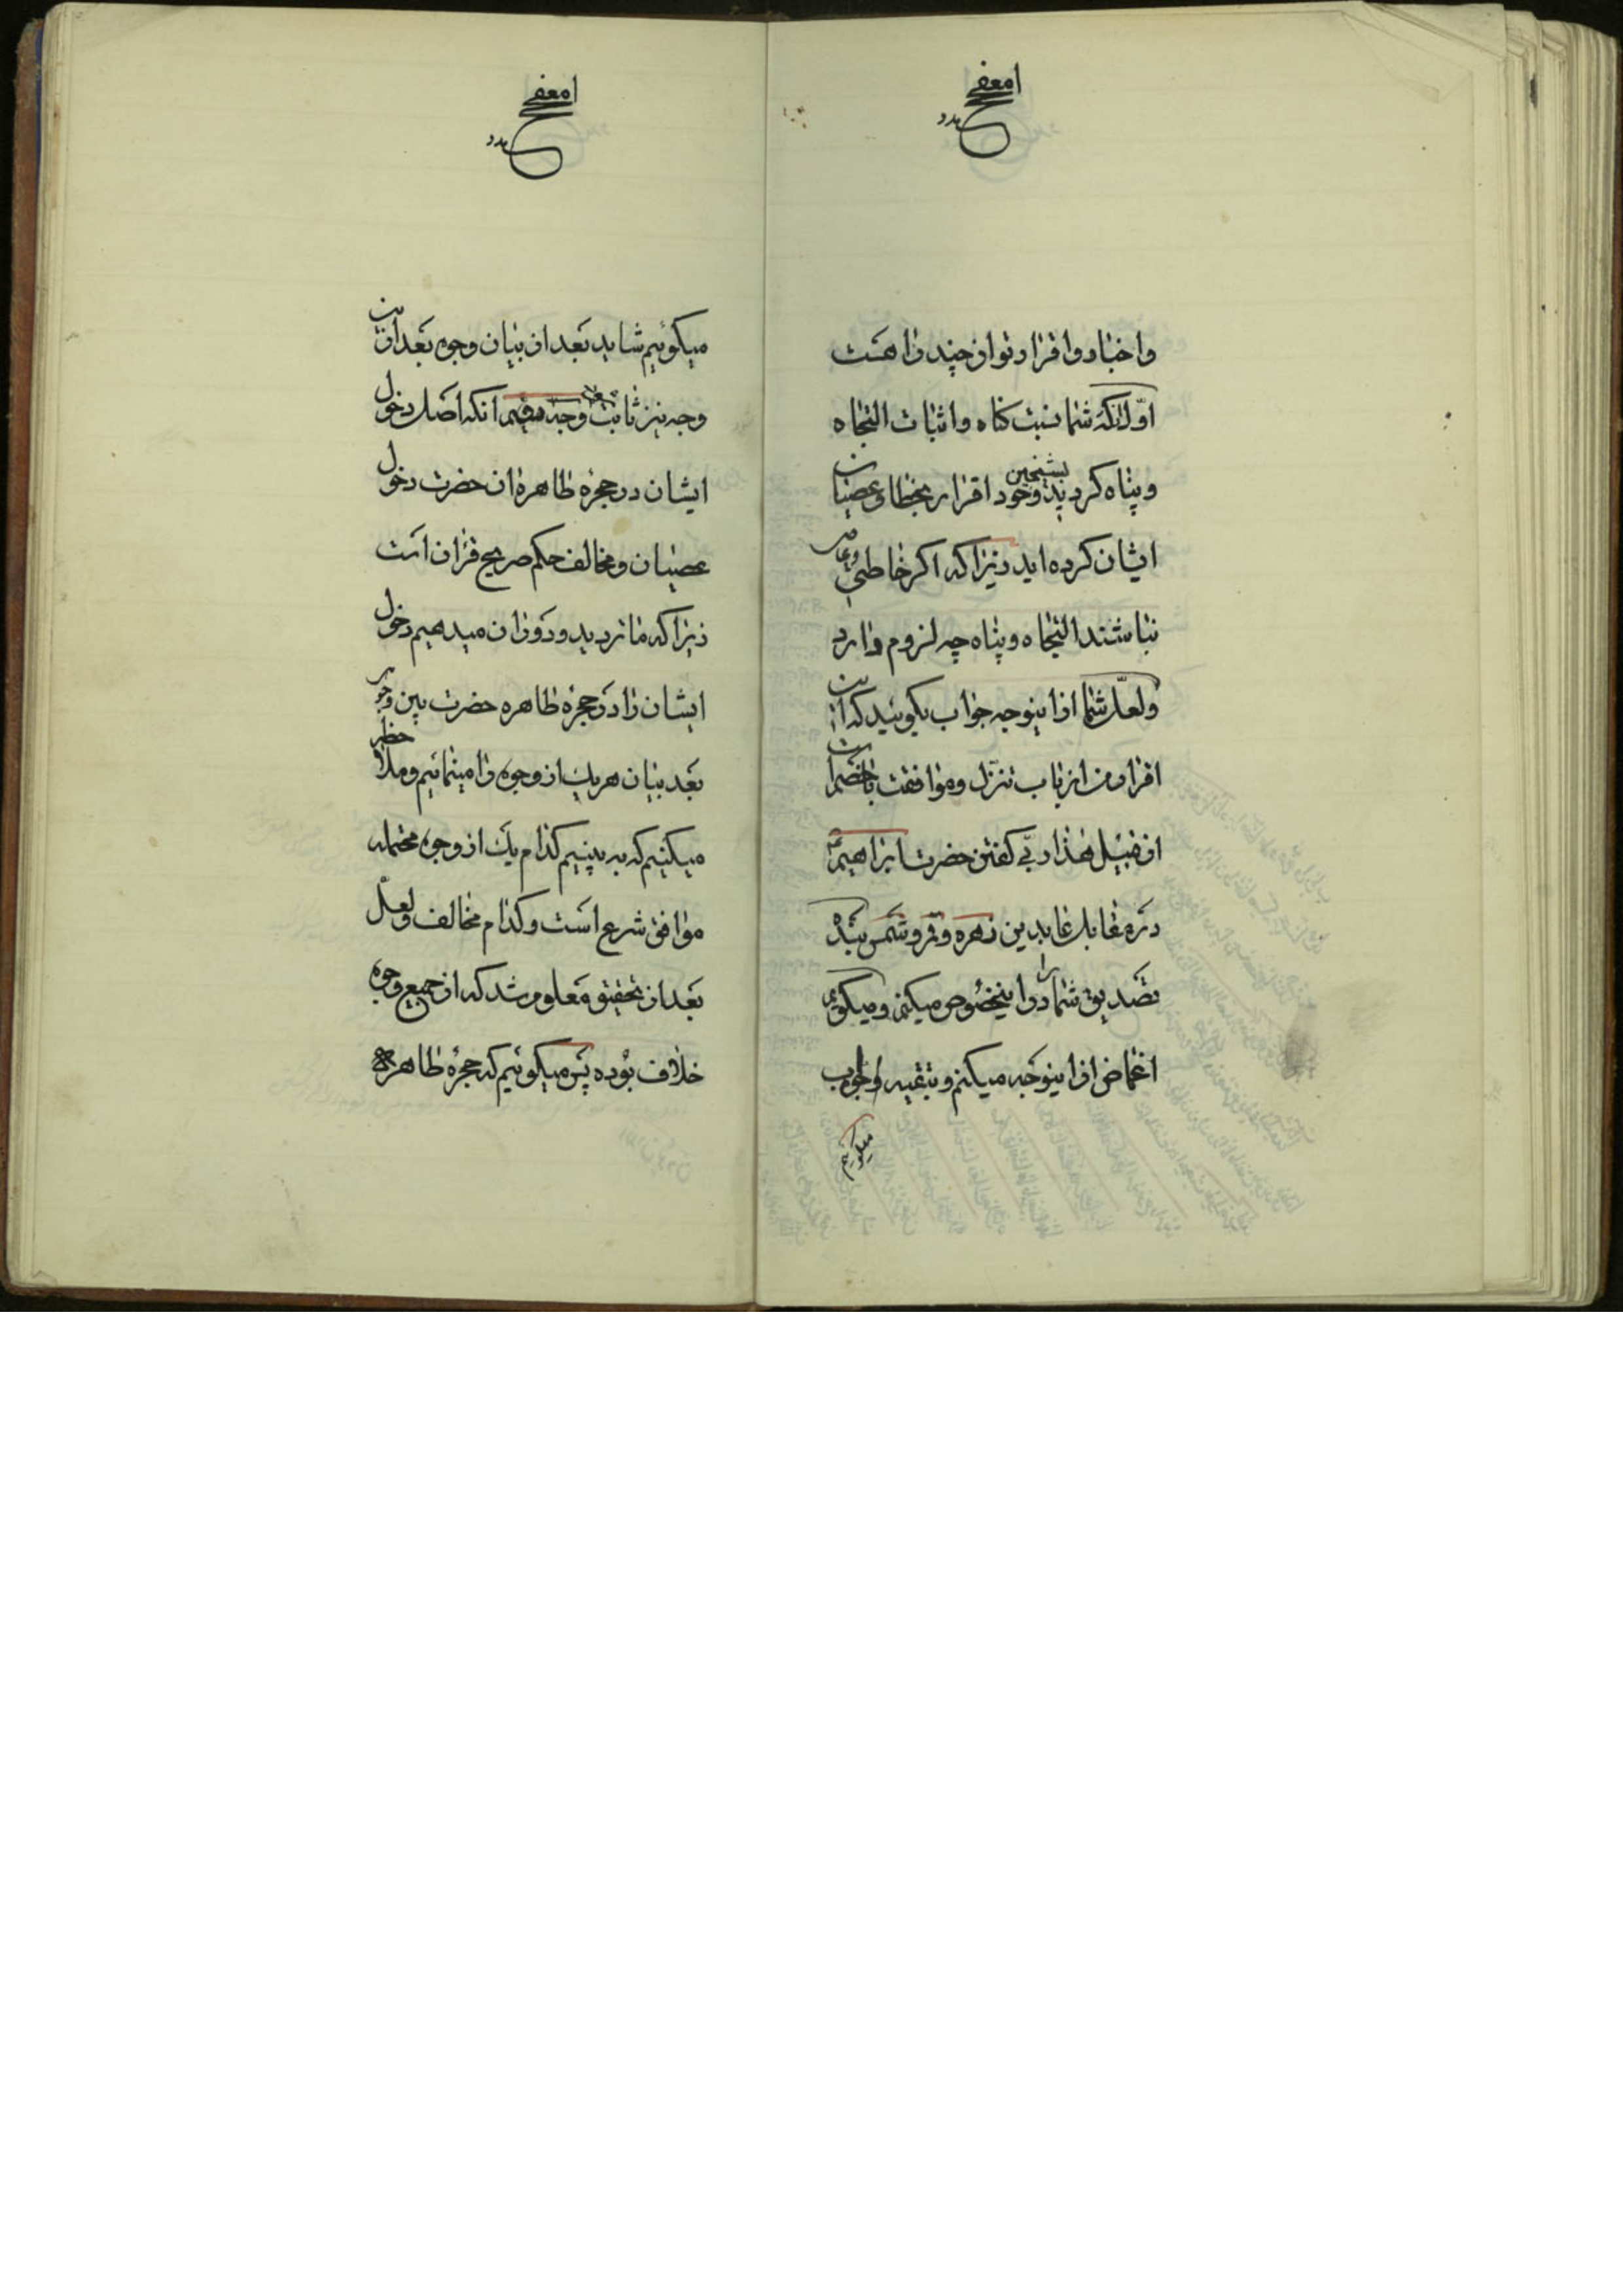 واخبار واقرار تو از چند راه است
اوّل انکه شما نسبت کناه واثبات التجاه
وپناه کردید بشیخین وخود اقرار بخطا وعصیان
ایشان کرده اید زیرا که اکر خاطی وعاصی
نباشند التجاه وپناه چه لزوم دارد
ولعلّ شما از اینوجه جواب بکوئید که این
اقرار من از باب تنزّل وموافقت با خصم است
از قبیل هذا ربّی کفتن حضرت ابراهیم
در مقابل عابدین زهره وقمر وشمس بنده
تصدیق شما را در اینخصوص میکنم ومیکویم
اغماض از اینوجه میکنم وبتقیه اولجواب
میکوئیم
میکوئیم شاید بعد از بیان وجوه بعد از این
وجه نیز ثابت وجه انکه اصل دخول
ایشان در حجره طاهره ان حضرت دخول
عصیان ومخالف حکم صریح قرآن است
زیرا که ما تردید ودوران میدهیم دخول
ایشان را در حجره طاهره حضرت بین وجوه
بعد بیان هریک از وجوه را مینمائیم وملاحظه
میکنیم که به بینیم کدام یک از وجوه محتمله
موافق شرع است وکدام مخالف ولعلّ
بعد از تحقیق معلوم شد که از جمیع وجوه
خلاف بوده پس میکوئیم که حجره طاهره